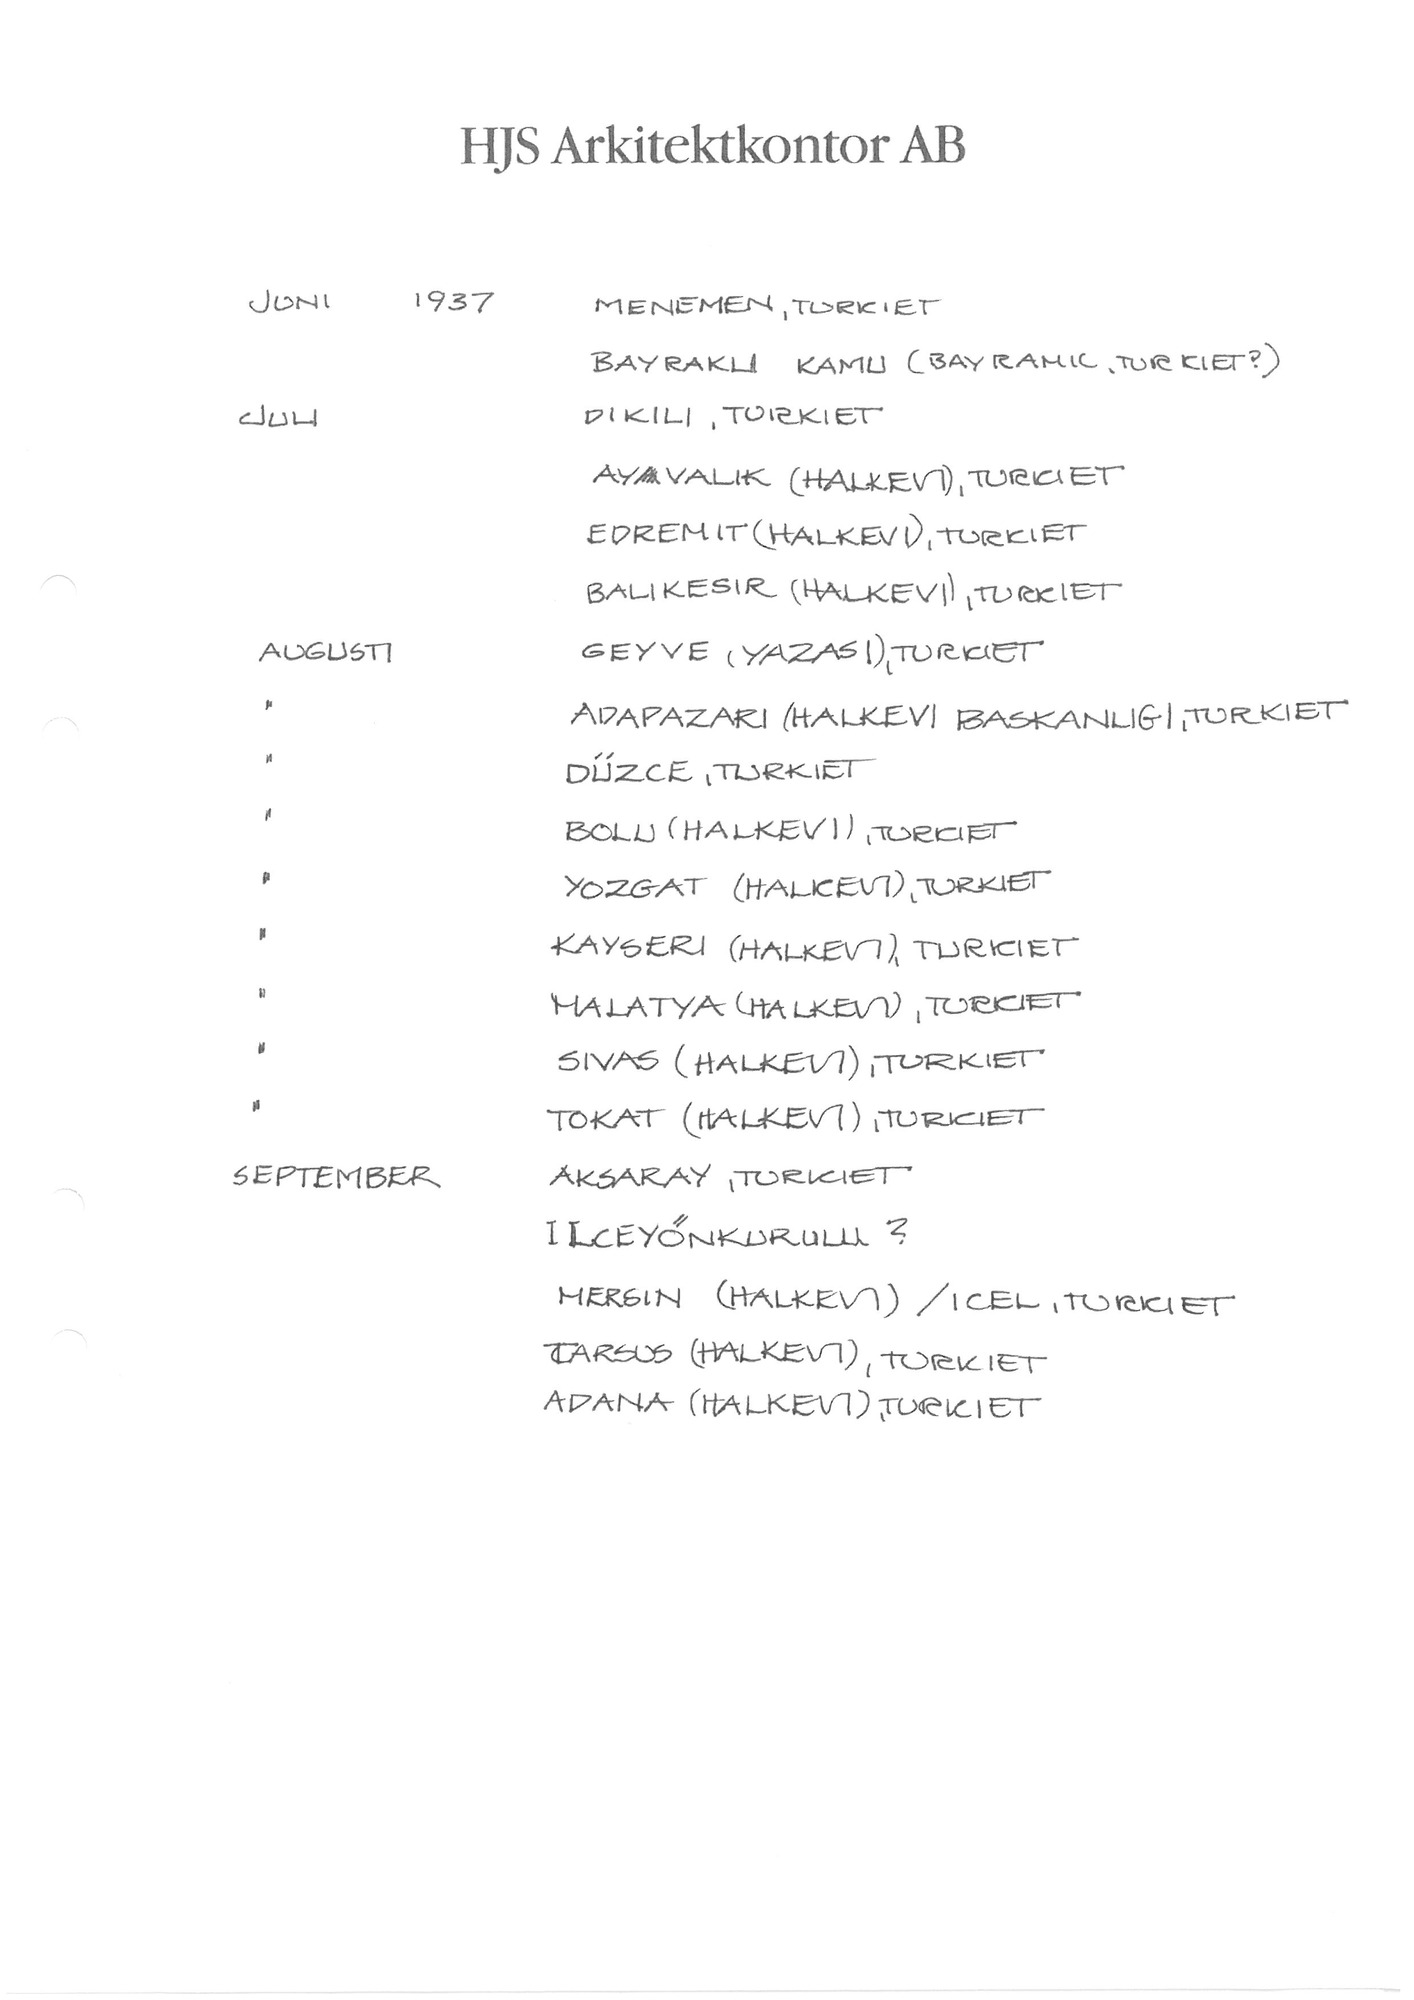 HJS Arkitektkontor AB
JUNI 1937 MENEMEN, TURKIET
BAYRAKLI KAMU (BAYRAMIC, TURKIET?)
JULI DIKILI, TURKIET
AYVALIK (HALKEVI), TURKIET
EDREMIT (HALKEVI), TURKIET
BALIKESIR (HALKEVI), TURKIET
AUGUSTI GEYVE (YAZASI), TURKIET
" ADAPAZARI (HALKEVI BASKANLIGI, TURKIET
" DÜZCE, TURKIET
" BOLU (HALKEVI), TURKIET
" YOZGAT (HALKEVI), TURKIET
" KAYSERI (HALKEVI), TURKIET
" MALATYA (HALKEVI), TURKIET
" SIVAS (HALKEVI), TURKIET
" TOKAT (HALKEVI), TURKIET
SEPTEMBER AKSARAY, TURKIET
ILCEYÖNKURULU ?
MERSIN (HALKEVI) / ICEL, TURKIET
TARSUS (HALKEVI), TURKIET
ADANA (HALKEVI), TURKIET